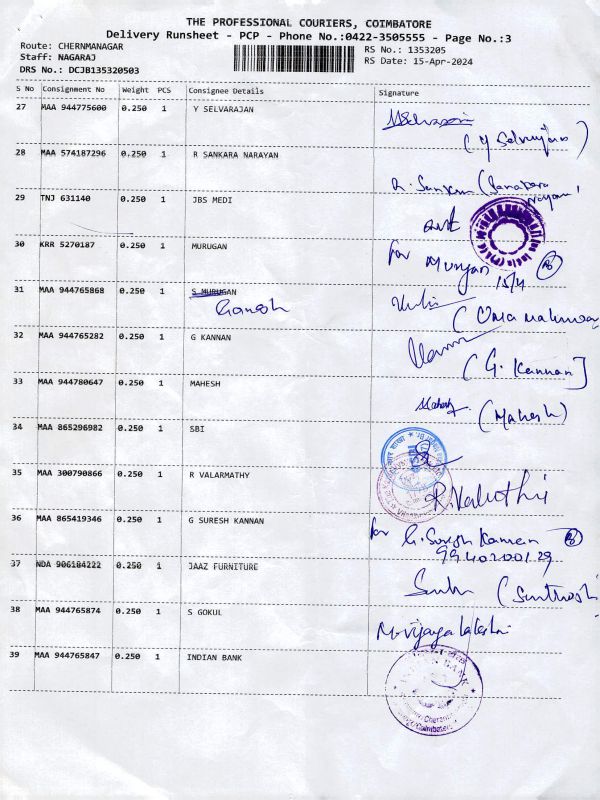 THE PROFESSIONAL COURIERS, COIMBATORE
Delivery Runsheet - PCP - Phone No.:0422-3505555 - Page No.:3
Route: CHERNMANAGAR
RS No.: 1353205
Staff: NAGARAJ
RS Date: 15-Apr-2024
DRS No.: DCJB135320503
S No Consignment No Weight PCS Consignee Details Signature
27 MAA 944775600 0.250 1 Y SELVARAJAN
(Y Selvarajan)
28 MAA 574187296 0.250 1 R SANKARA NARAYAN
R. Sankara (Sankara Narayan)
29 TNJ 631140 0.250 1 JBS MEDI
30 KRR 5270187 0.250 1 MURUGAN
for Murugan
15/4
31 MAA 944765868 0.250 1 S MURUGAN
Ganesh
(Uma Maheswar
32 MAA 944765282 0.250 1 G KANNAN
(G. Kannan)
33 MAA 944780647 0.250 1 MAHESH
Mahesh (Mahesh)
34 MAA 865296982 0.250 1 SBI
35 MAA 300790866 0.250 1 R VALARMATHY
36 MAA 865419346 0.250 1 G SURESH KANNAN
for G. Suresh Kannan
9940200129
37 NDA 906184222 0.250 1 JAAZ FURNITURE
(Santhosh
38 MAA 944765874 0.250 1 S GOKUL
M. Vijayalakshmi
39 MAA 944765847 0.250 1 INDIAN BANK